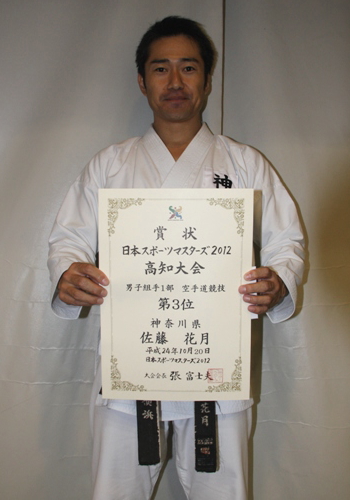 神
賞状
日本スポーツマスターズ2012
高知大会
男子組手1部 空手道競技
第3位
神奈川県
佐藤 花月
平成24年10月20日
日本スポーツマスターズ2012
大会会長 張 富士夫
横浜
花月